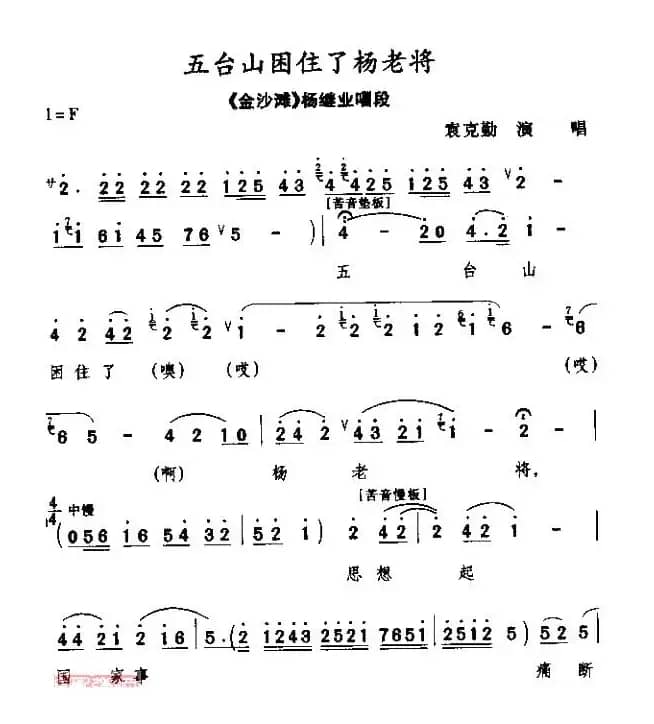 五台山困住了杨老将
《金沙滩》杨继业唱段
1=F
袁克勤 演 唱
サ2. 22 22 22 22 125 43 4 4425 125 43 ∨ 2 -
[苦音垫板]
11 61 45 76 ∨ 5 - )| 4 - 20 4.2 1 -
五 台 山
4 2 42 2 2 ∨ 1 - 2 2 1 2 1 6 - 6
困 住 了 (噢) (哎) (哎)
6 5 - 4 2 10 | 24 2 ∨ 43 21 1 - 2 -
(啊) 杨 老 将,
4/4 中慢 [苦音慢板]
(056 16 54 32 | 52 1) 2 42 | 2 42 1 -
思 想 起
44 21 2 16 | 5.(2 1243 2521 7651 | 2512 5) 52 5
国 家 事 痛 断